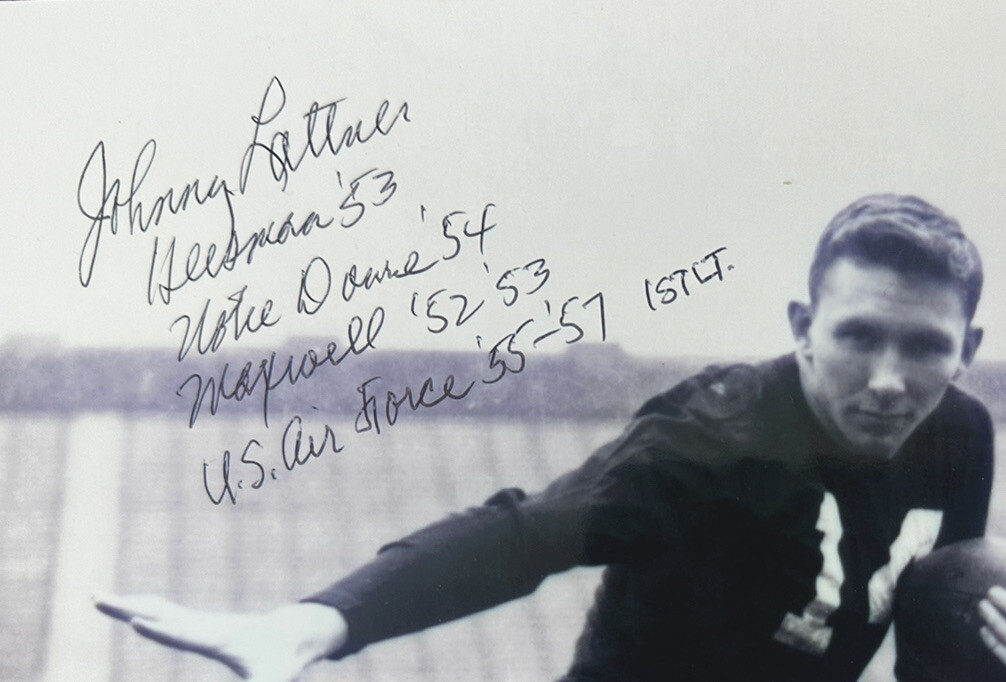 Johnny Lattner
Heisman '53
Notre Dame '54
Maxwell '52 '53
U.S. Air Force '55-'57 1ST LT.
14